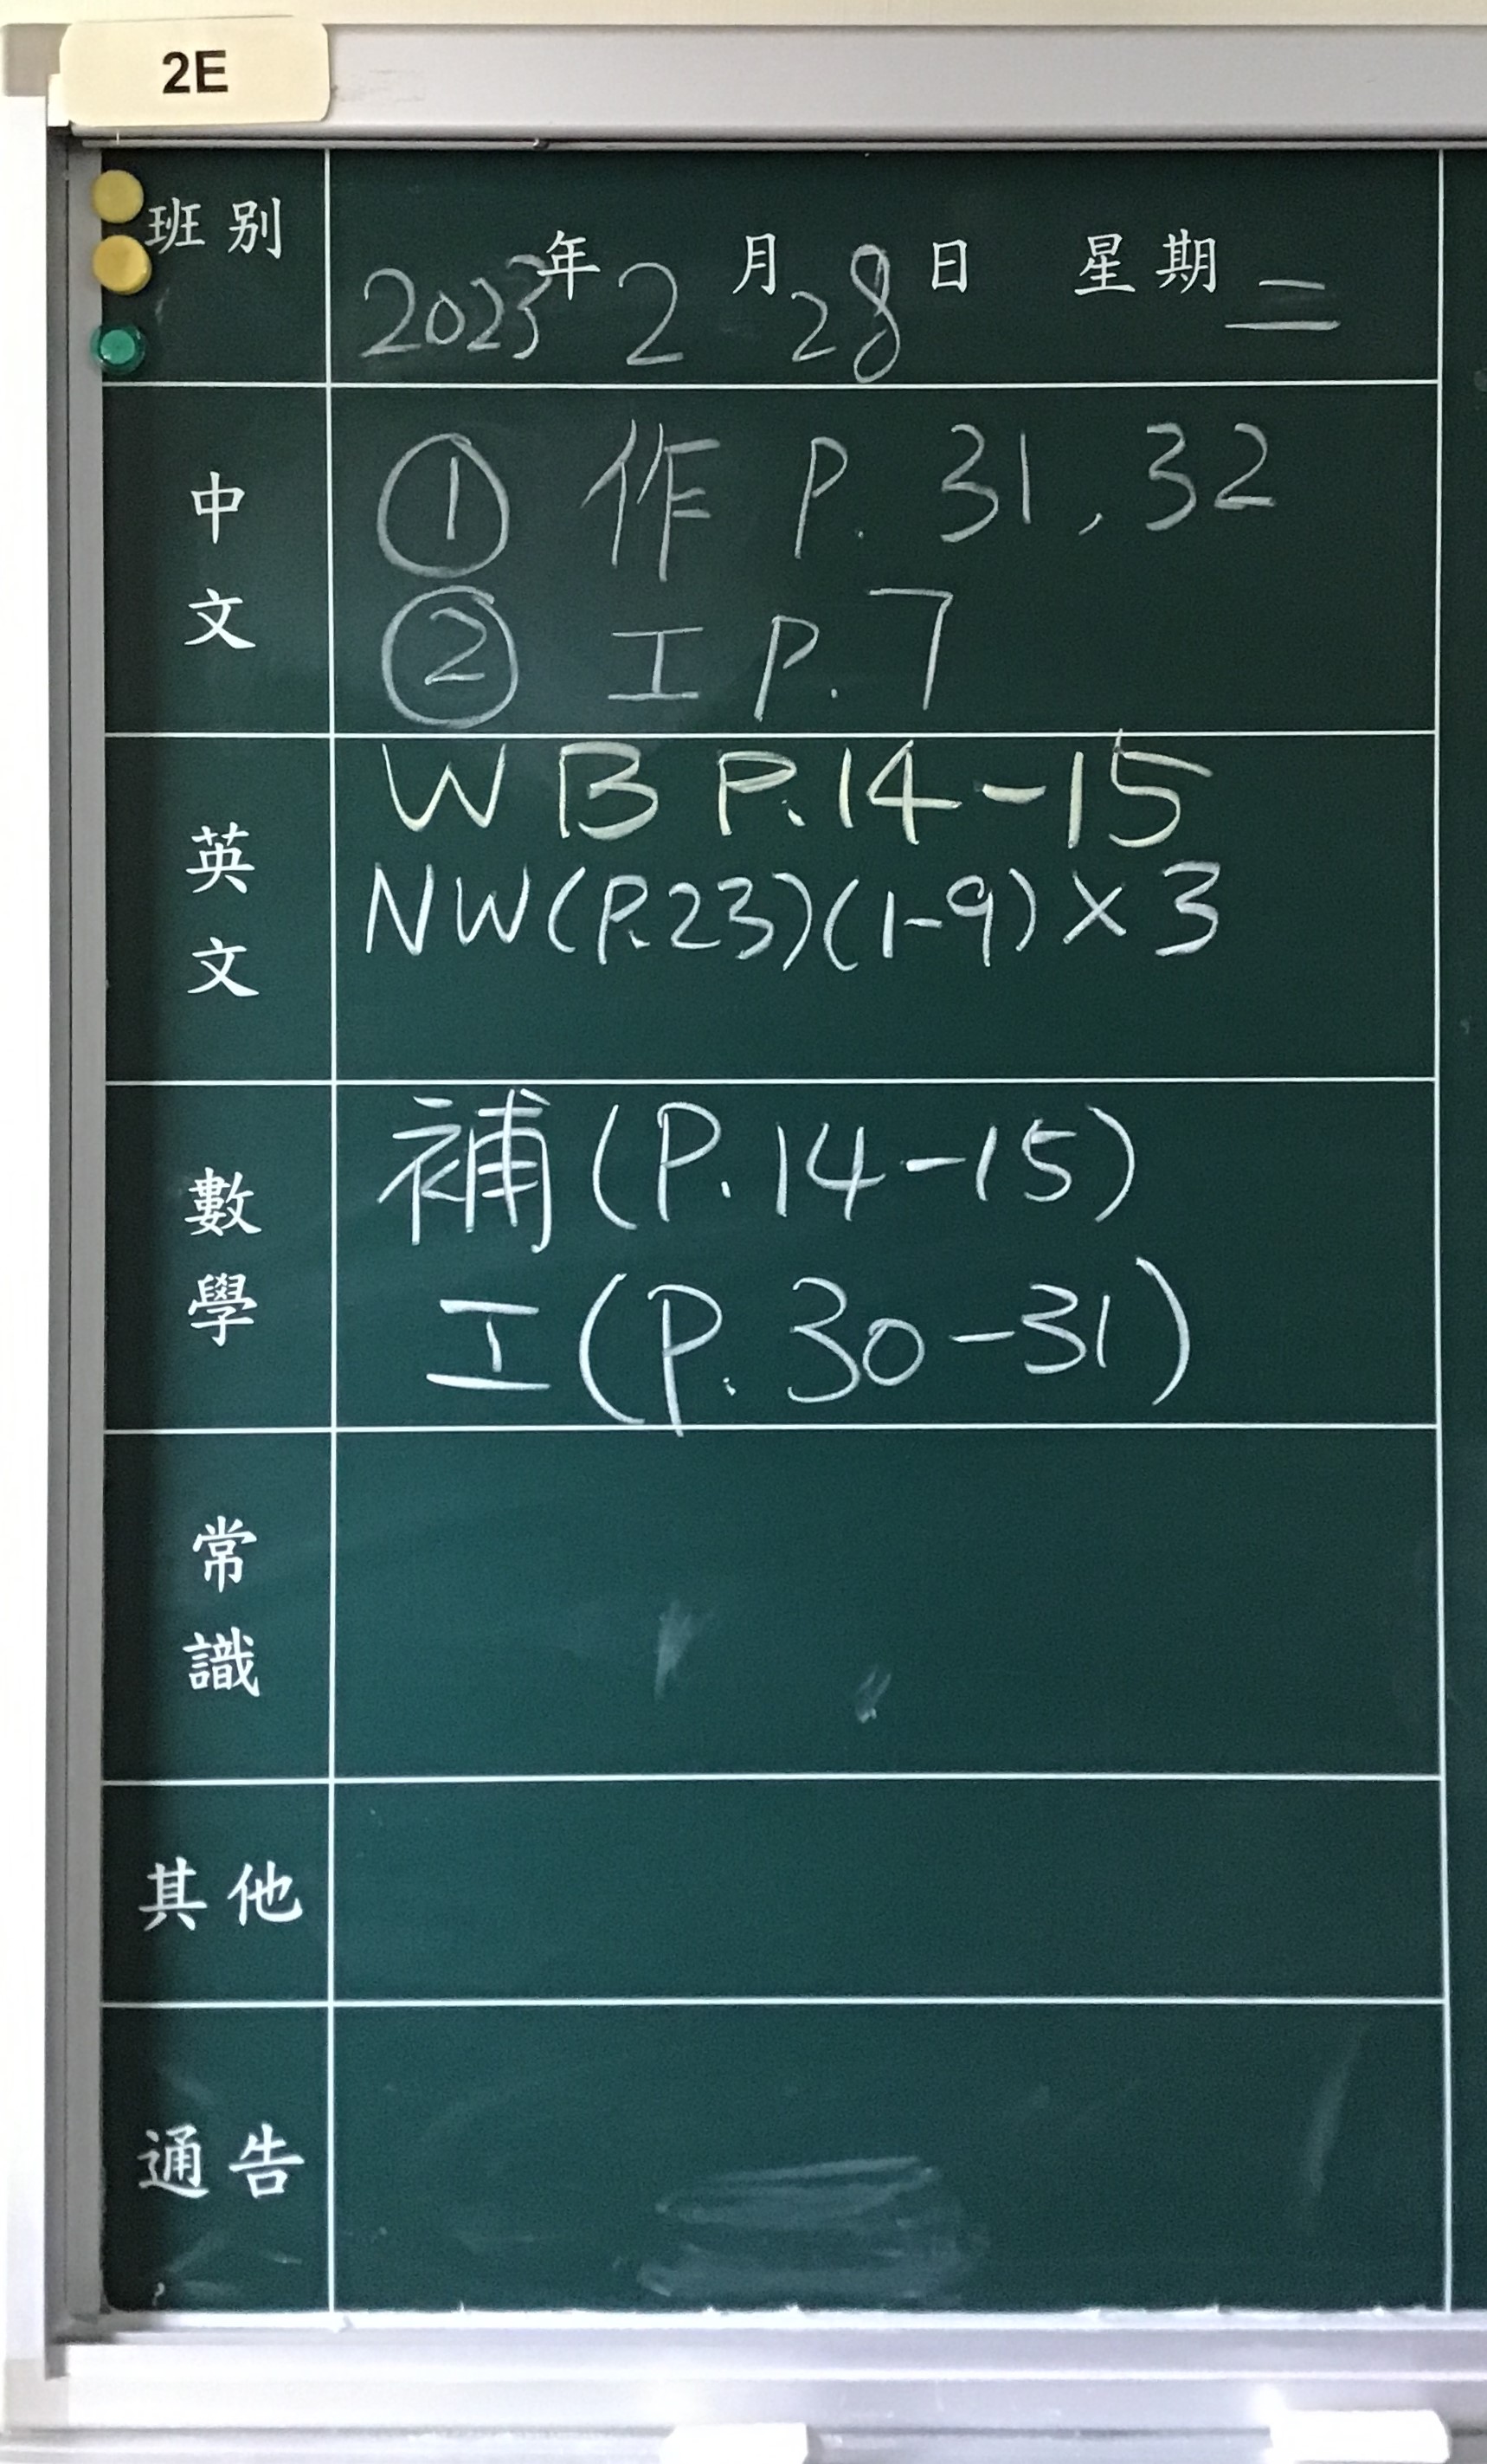 2E
班別
2023年2月28日 星期二
中文
① 作 P. 31, 32
② 工 P. 7
英文
WB P.14-15
NW(P.23)(1-9)×3
數學
補(P.14-15)
工(P.30-31)
常識
其他
通告